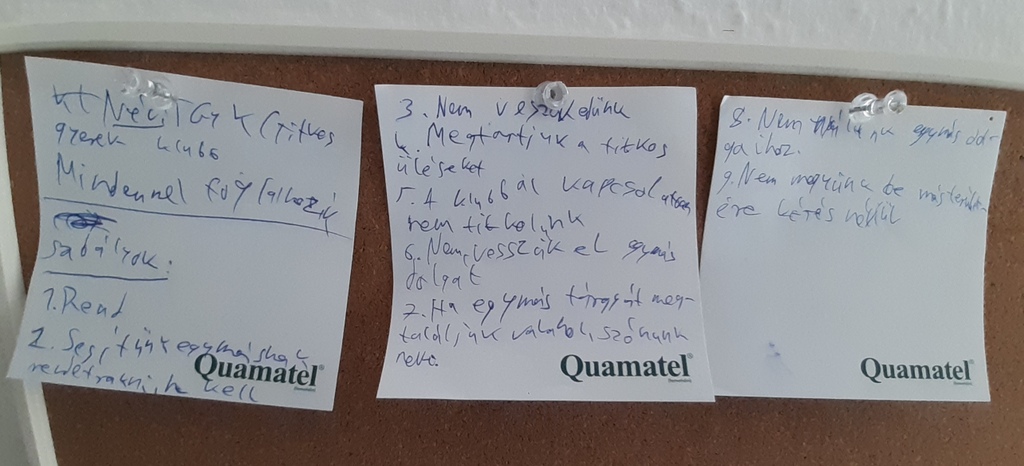 Név: TGYK (titkos
gyerek klubb
Mindennel foglalkozik
szabályok:
1. Rend
2. Segítünk egymásnak
rendetrakni, ha kell
Quamatel®
3. Nem veszekedünk
4. Megtartjuk a titkos
üléseket
5. A klubbal kapcsolatban
nem titkolunk
6. Nem vesszük el egymás
dolgát
7. Ha egymás tárgyát meg-
találjuk valahol, szólunk
neki.
Quamatel®
8. Nem nyúlunk egymás dol-
gaihoz.
9. Nem megyünk be más terület-
ére kérés nélkül
Quamatel®